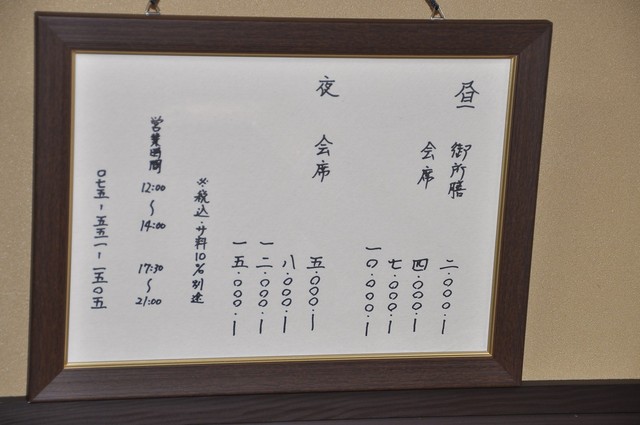 昼 御所膳 二.〇〇〇.ー
会席 四.〇〇〇.ー
七.〇〇〇.ー
一〇.〇〇〇.ー
夜 会席 五.〇〇〇.ー
八.〇〇〇.ー
一二.〇〇〇.ー
一五.〇〇〇.ー
※税込・サ料10%別途
営業時間 12:00〜14:00 17:30〜21:00
〇七五-五五一-一五〇五